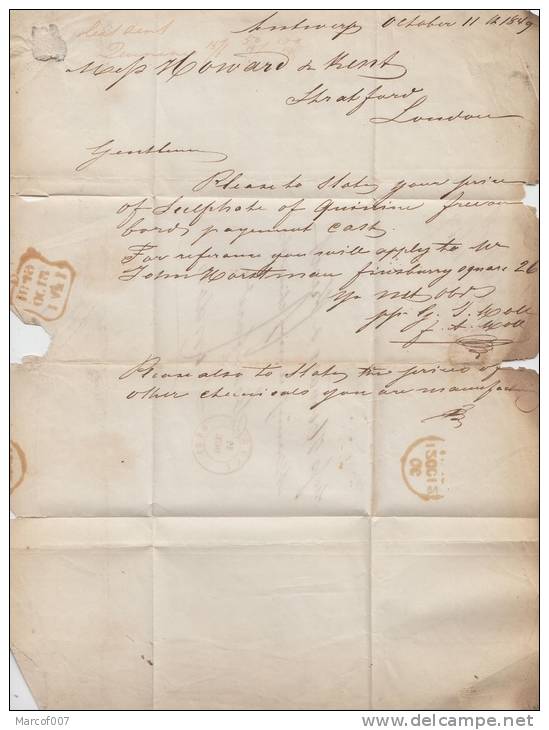 Antwerp October 11th 1849
Mess Howard & Kent
Stratford
London
Gentlemen
Please to State your price
of Sulphate of Quinine free on
bord, payment cash.
For reference you will apply to Mr
John Horstman finsbury square 26
J. A. Moll
Please also to State the prices of
other chemicals you are manufac
Marcof007
delcampe.net